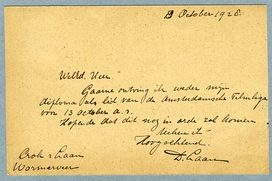 9 October 1928
WelEd. Heer.
Gaarne ontving ik weder mijn
diploma als lid van de Amsterdamsche Filmliga
voor 13 october a.s.
Hopende dat dit nog in orde zal komen
teeken ik
Hoogachtend
D. Laan
Crok & Laan
Wormerveer